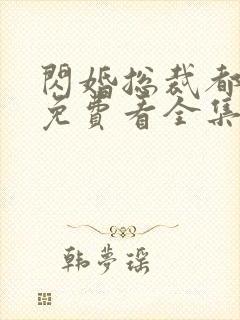 閃婚總裁都
免費看全集
韩夢瑶